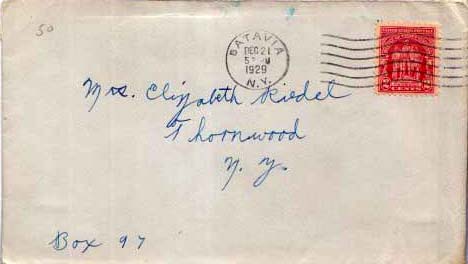 50
BATAVIA
DEC 21
5 M
1929
N.Y.
2 CENTS 2
Mrs. Elizabeth Riedel
Thornwood
N. Y.
Box 97